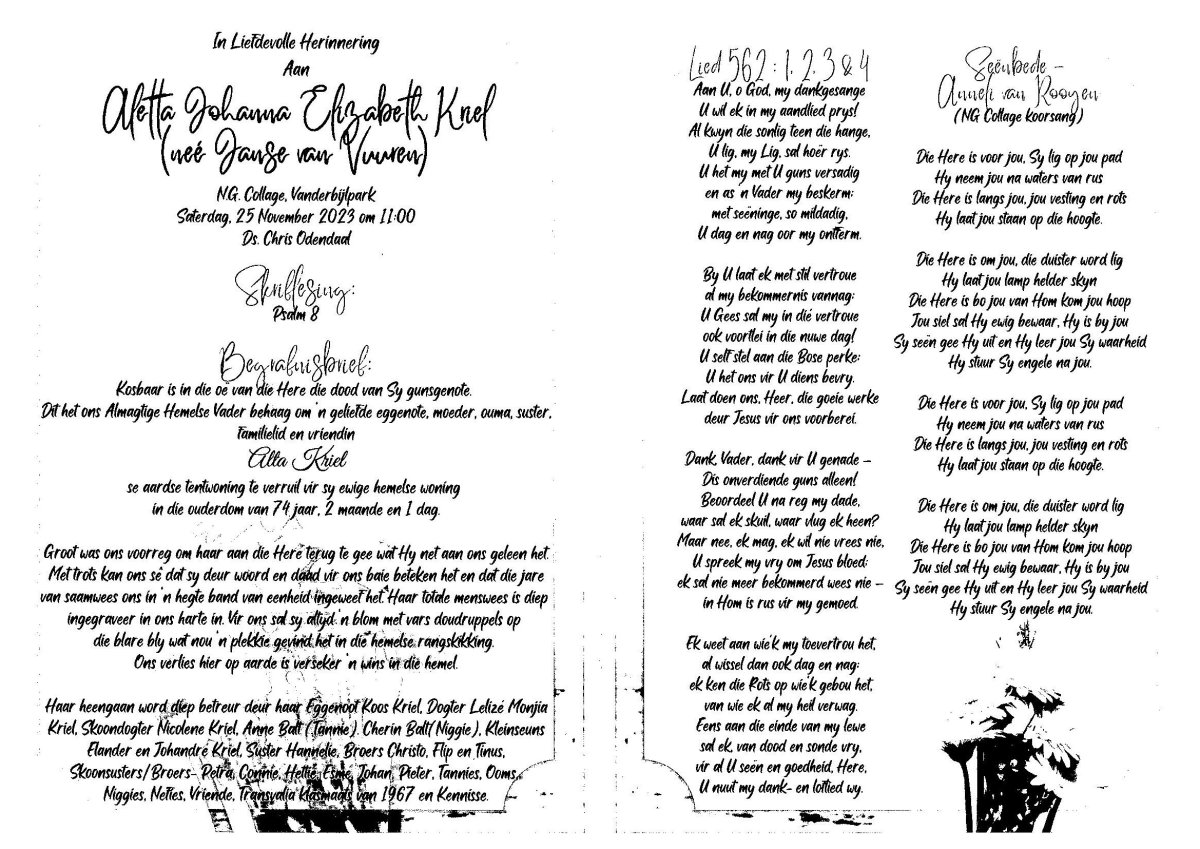 In Liefdevolle Herinnering
Aan
Aletta Johanna Elizabeth Kriel
(neé Janse van Vuuren)
N.G. Collage, Vanderbijlpark
Saterdag, 25 November 2023 om 11:00
Ds. Chris Odendaal
Skriflesing:
Psalm 8
Begrafnisbrief:
Kosbaar is in die oë van die Here die dood van Sy gunsgenote.
Dit het ons Almagtige Hemelse Vader behaag om 'n geliefde eggenote, moeder, ouma, suster,
familielid en vriendin
Alta Kriel
se aardse tentwoning te verruil vir sy ewige hemelse woning
in die ouderdom van 74 jaar, 2 maande en 1 dag.
Groot was ons voorreg om haar aan die Here terug te gee wat Hy net aan ons geleen het.
Met trots kan ons sê dat sy deur woord en daad vir ons baie beteken het en dat die jare
van saamwees ons in 'n hegte band van eenheid ingeweef het. Haar totale menswees is diep
ingegraveer in ons harte in. Vir ons sal sy altyd 'n blom met vars doudruppels op
die blare bly wat nou 'n plekkie gevind het in die hemelse rangskikking.
Ons verlies hier op aarde is verseker 'n wins in die hemel.
Haar heengaan word diep betreur deur haar Eggenoot Koos Kriel, Dogter Lelizé Monjia
Kriel, Skoondogter Nicolene Kriel, Anne Balt (Tannie). Cherin Balt(Niggie), Kleinseuns
Elander en Johandré Kriel, Suster Hannelie, Broers Christo, Flip en Tinus,
Skoonsusters/Broers- Petra, Connie, Hettie, Esmé, Johan, Pieter, Tannies, Ooms,
Niggies, Nefies, Vriende, Transvalia klasmaats van 1967 en Kennisse.
Lied 562 : 1, 2, 3 & 4
Aan U, o God, my dankgesange
U wil ek in my aandlied prys!
Al kwyn die sonlig teen die hange,
U lig, my Lig, sal hoër rys.
U het my met U guns versadig
en as 'n Vader my beskerm;
met seëninge, so mildadig,
U dag en nag oor my ontferm.
By U laat ek met stil vertroue
al my bekommernis vannag:
U Gees sal my in dié vertroue
ook voortlei in die nuwe dag!
U self stel aan die Bose perke;
U het ons vir U diens bevry.
Laat doen ons, Heer, die goeie werke
deur Jesus vir ons voorberei.
Dank, Vader, dank vir U genade –
Dis onverdiende guns alleen!
Beoordeel U na reg my dade,
waar sal ek skuil, waar vlug ek heen?
Maar nee, ek mag, ek wil nie vrees nie,
U spreek my vry om Jesus bloed;
ek sal nie meer bekommerd wees nie –
in Hom is rus vir my gemoed.
Ek weet aan wie'k my toevertrou het,
al wissel dan ook dag en nag;
ek ken die Rots op wie'k gebou het,
van wie ek al my heil verwag.
Eens aan die einde van my lewe
sal ek, van dood en sonde vry,
vir al U seën en goedheid, Here,
U nuut my dank- en loflied wy.
Seënbede –
Anneli van Rooyen
(NG Collage koorsang)
Die Here is voor jou, Sy lig op jou pad
Hy neem jou na waters van rus
Die Here is langs jou, jou vesting en rots
Hy laat jou staan op die hoogte.
Die Here is om jou, die duister word lig
Hy laat jou lamp helder skyn
Die Here is bo jou van Hom kom jou hoop
Jou siel sal Hy ewig bewaar, Hy is by jou
Sy seën gee Hy uit en Hy leer jou Sy waarheid
Hy stuur Sy engele na jou.
Die Here is voor jou, Sy lig op jou pad
Hy neem jou na waters van rus
Die Here is langs jou, jou vesting en rots
Hy laat jou staan op die hoogte.
Die Here is om jou, die duister word lig
Hy laat jou lamp helder skyn
Die Here is bo jou van Hom kom jou hoop
Jou siel sal Hy ewig bewaar, Hy is by jou
Sy seën gee Hy uit en Hy leer jou Sy waarheid
Hy stuur Sy engele na jou.